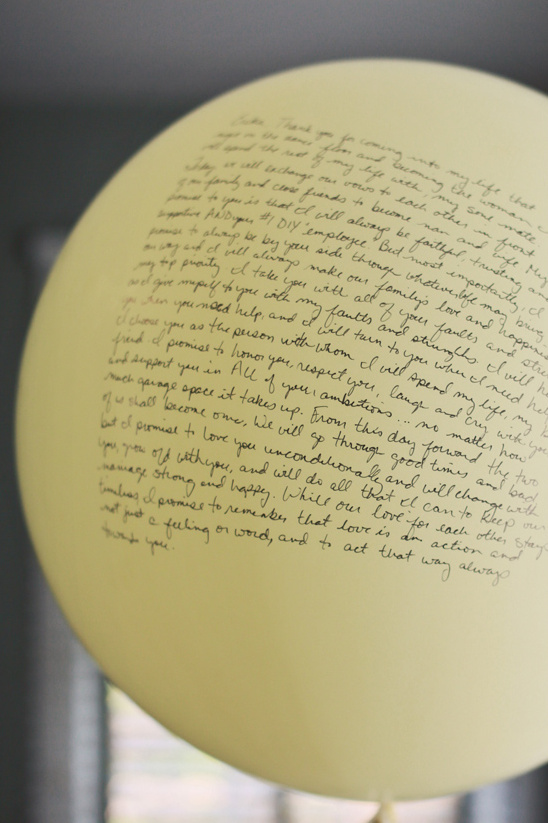 Thank you for coming into my life that
night on the dance floor and becoming the woman
will spend the rest of my life with, my soul mate.
Today we will exchange our vows to each other in front
of our family and close friends to become man and wife. My
promise to you is that I will always be faithful, trusting an
supportive AND your #1 DIY employee. But most importantly, I
promise to always be by your side through whatever life may bring
our way and I will always make our family's love and happine
my top priority. I take you with all of your faults and stre
as I give myself to you with my faults and strengths. I will h
you when you need help, and I will turn to you when I need hel
I choose you as the person with whom I will spend my life, my b
friend. I promise to honor you, respect you, laugh and cry with you
and support you in All of your ambitions ... no matter how
much garage space it takes up. From this day forward the two
of us shall become one, We will go through good times and bad
but I promise to love you unconditionally, and will change with
you, grow old with you, and will do all that I can to keep our
marriage strong and happy. While our love for each other stays
timeless I promise to remember that love is an action and
not just a feeling or word, and to act that way always
towards you.